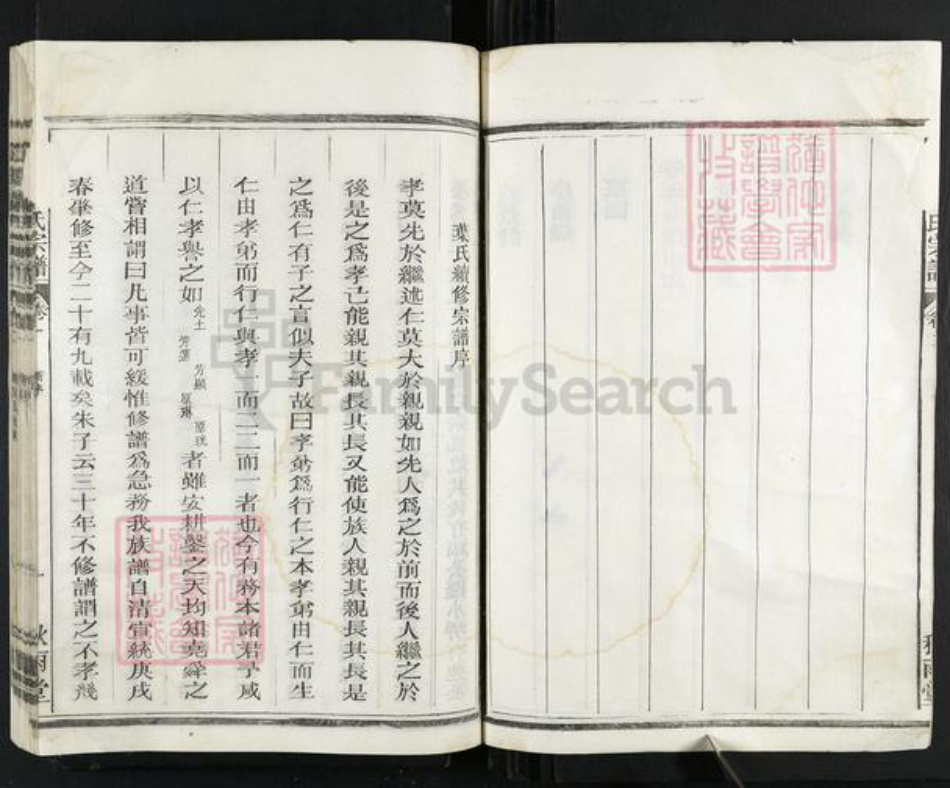 氏宗譜
葉氏續修宗譜序
孝莫先於繼述仁莫大於親親如先人爲之於前而後人繼之於
後是之爲孝己能親其親長其長又能使族人親其親長其長是
之爲仁有子之言似夫子故曰孝弟爲行仁之本孝弟由仁而生
仁由孝弟而行仁與孝一而二二而一者也今有務本諸君子咸
以仁孝譽之如先土芳顯者雖安耕鑿之天均知堯舜之
道嘗相謂曰凡事皆可緩惟修譜爲急務我族譜自清宣統庚戌
春肇修至今二十有九載矣朱子云三十年不修譜謂之不孝幾
氏宗譜
卷一
秋雨堂
FamilySearch